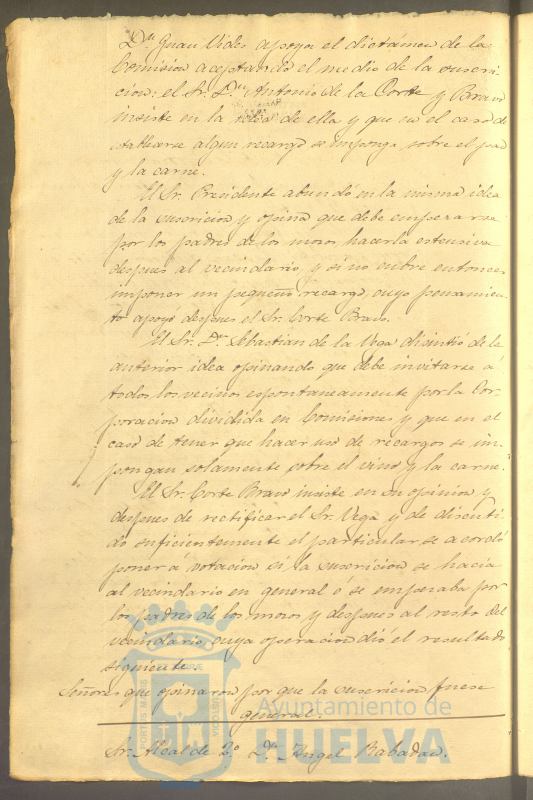 Dn. Juan Vides apoya el dictámen de la
Comision aceptando el medio de la suscri-
cion; el Sr. Dn. Antonio de la Corte y Bravo
insiste en la idea de ella y que en el caso de
establecerse algun recargo se imponga sobre el pan
y la carne.
El Sr. Presidente abundó en la misma idea
de la suscricion y opina que debe empezarse
por los padres de los mosos, hacerla estensiva
despues al vecindario, y si no cubre entonces
imponer un pequeño recargo, cuyo pensamien-
to apoyó despues el Sr. Corte Bravo.
El Sr. Dn. Sebastian de la Vega disintió de la
anterior idea opinando que debe invitarse á
todos los vecinos espontaneamente por la Cor-
poracion dividida en Comisiones y que en el
caso de tener que hacer uso de recargos se im-
pongan solamente sobre el vino y la carne.
El Sr. Corte Bravo insiste en su opinion y
despues de rectificar el Sr. Vega y de discuti-
do suficientemente el particular, se acordó
poner á votacion si la suscricion se hacia
al vecindario en general ó se empezaba por
los padres de los mosos y despues al resto del
vecindario, cuya operacion dió el resultado
siguiente.
Señores que opinaron por que la suscricion fuese
general.
Sr. Alcalde 2º Dn. Angel Rabadan.
Ayuntamiento de
HUELVA